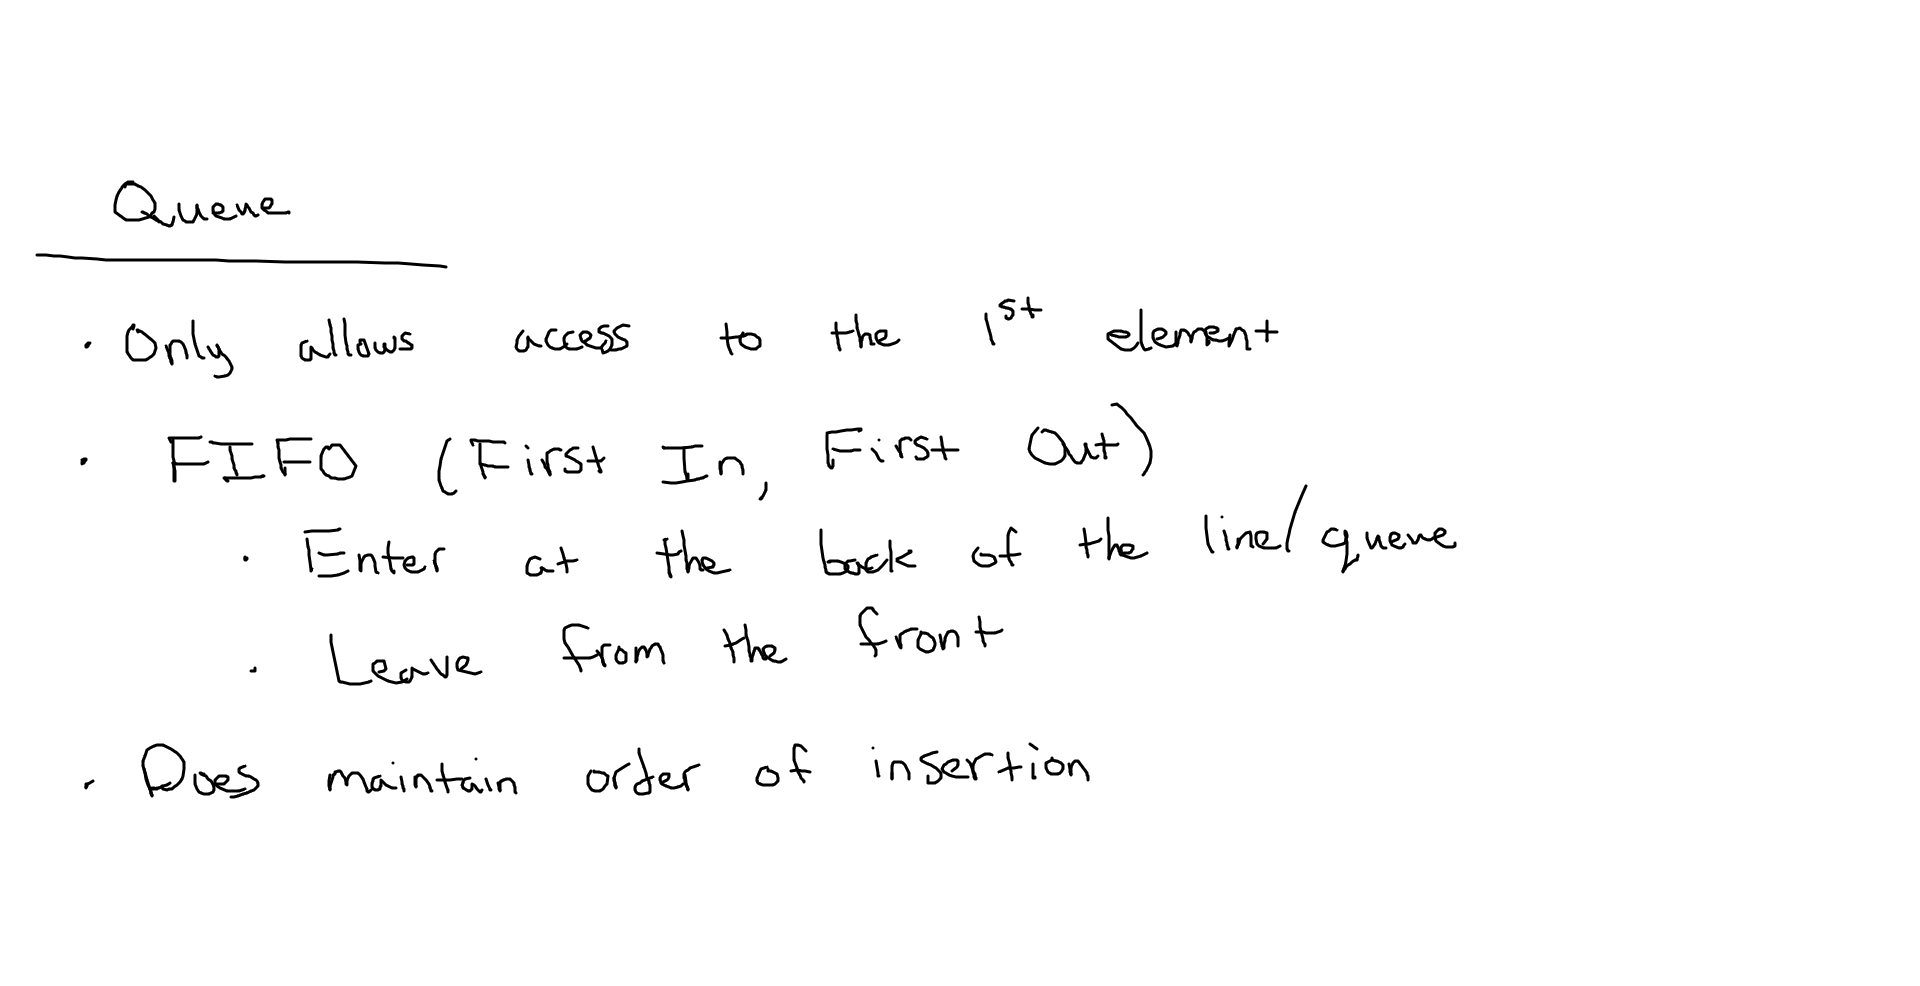 Queue
· Only allows access to the 1st element
· FIFO (First In, First Out)
· Enter at the back of the line/queue
· Leave from the front
· Does maintain order of insertion